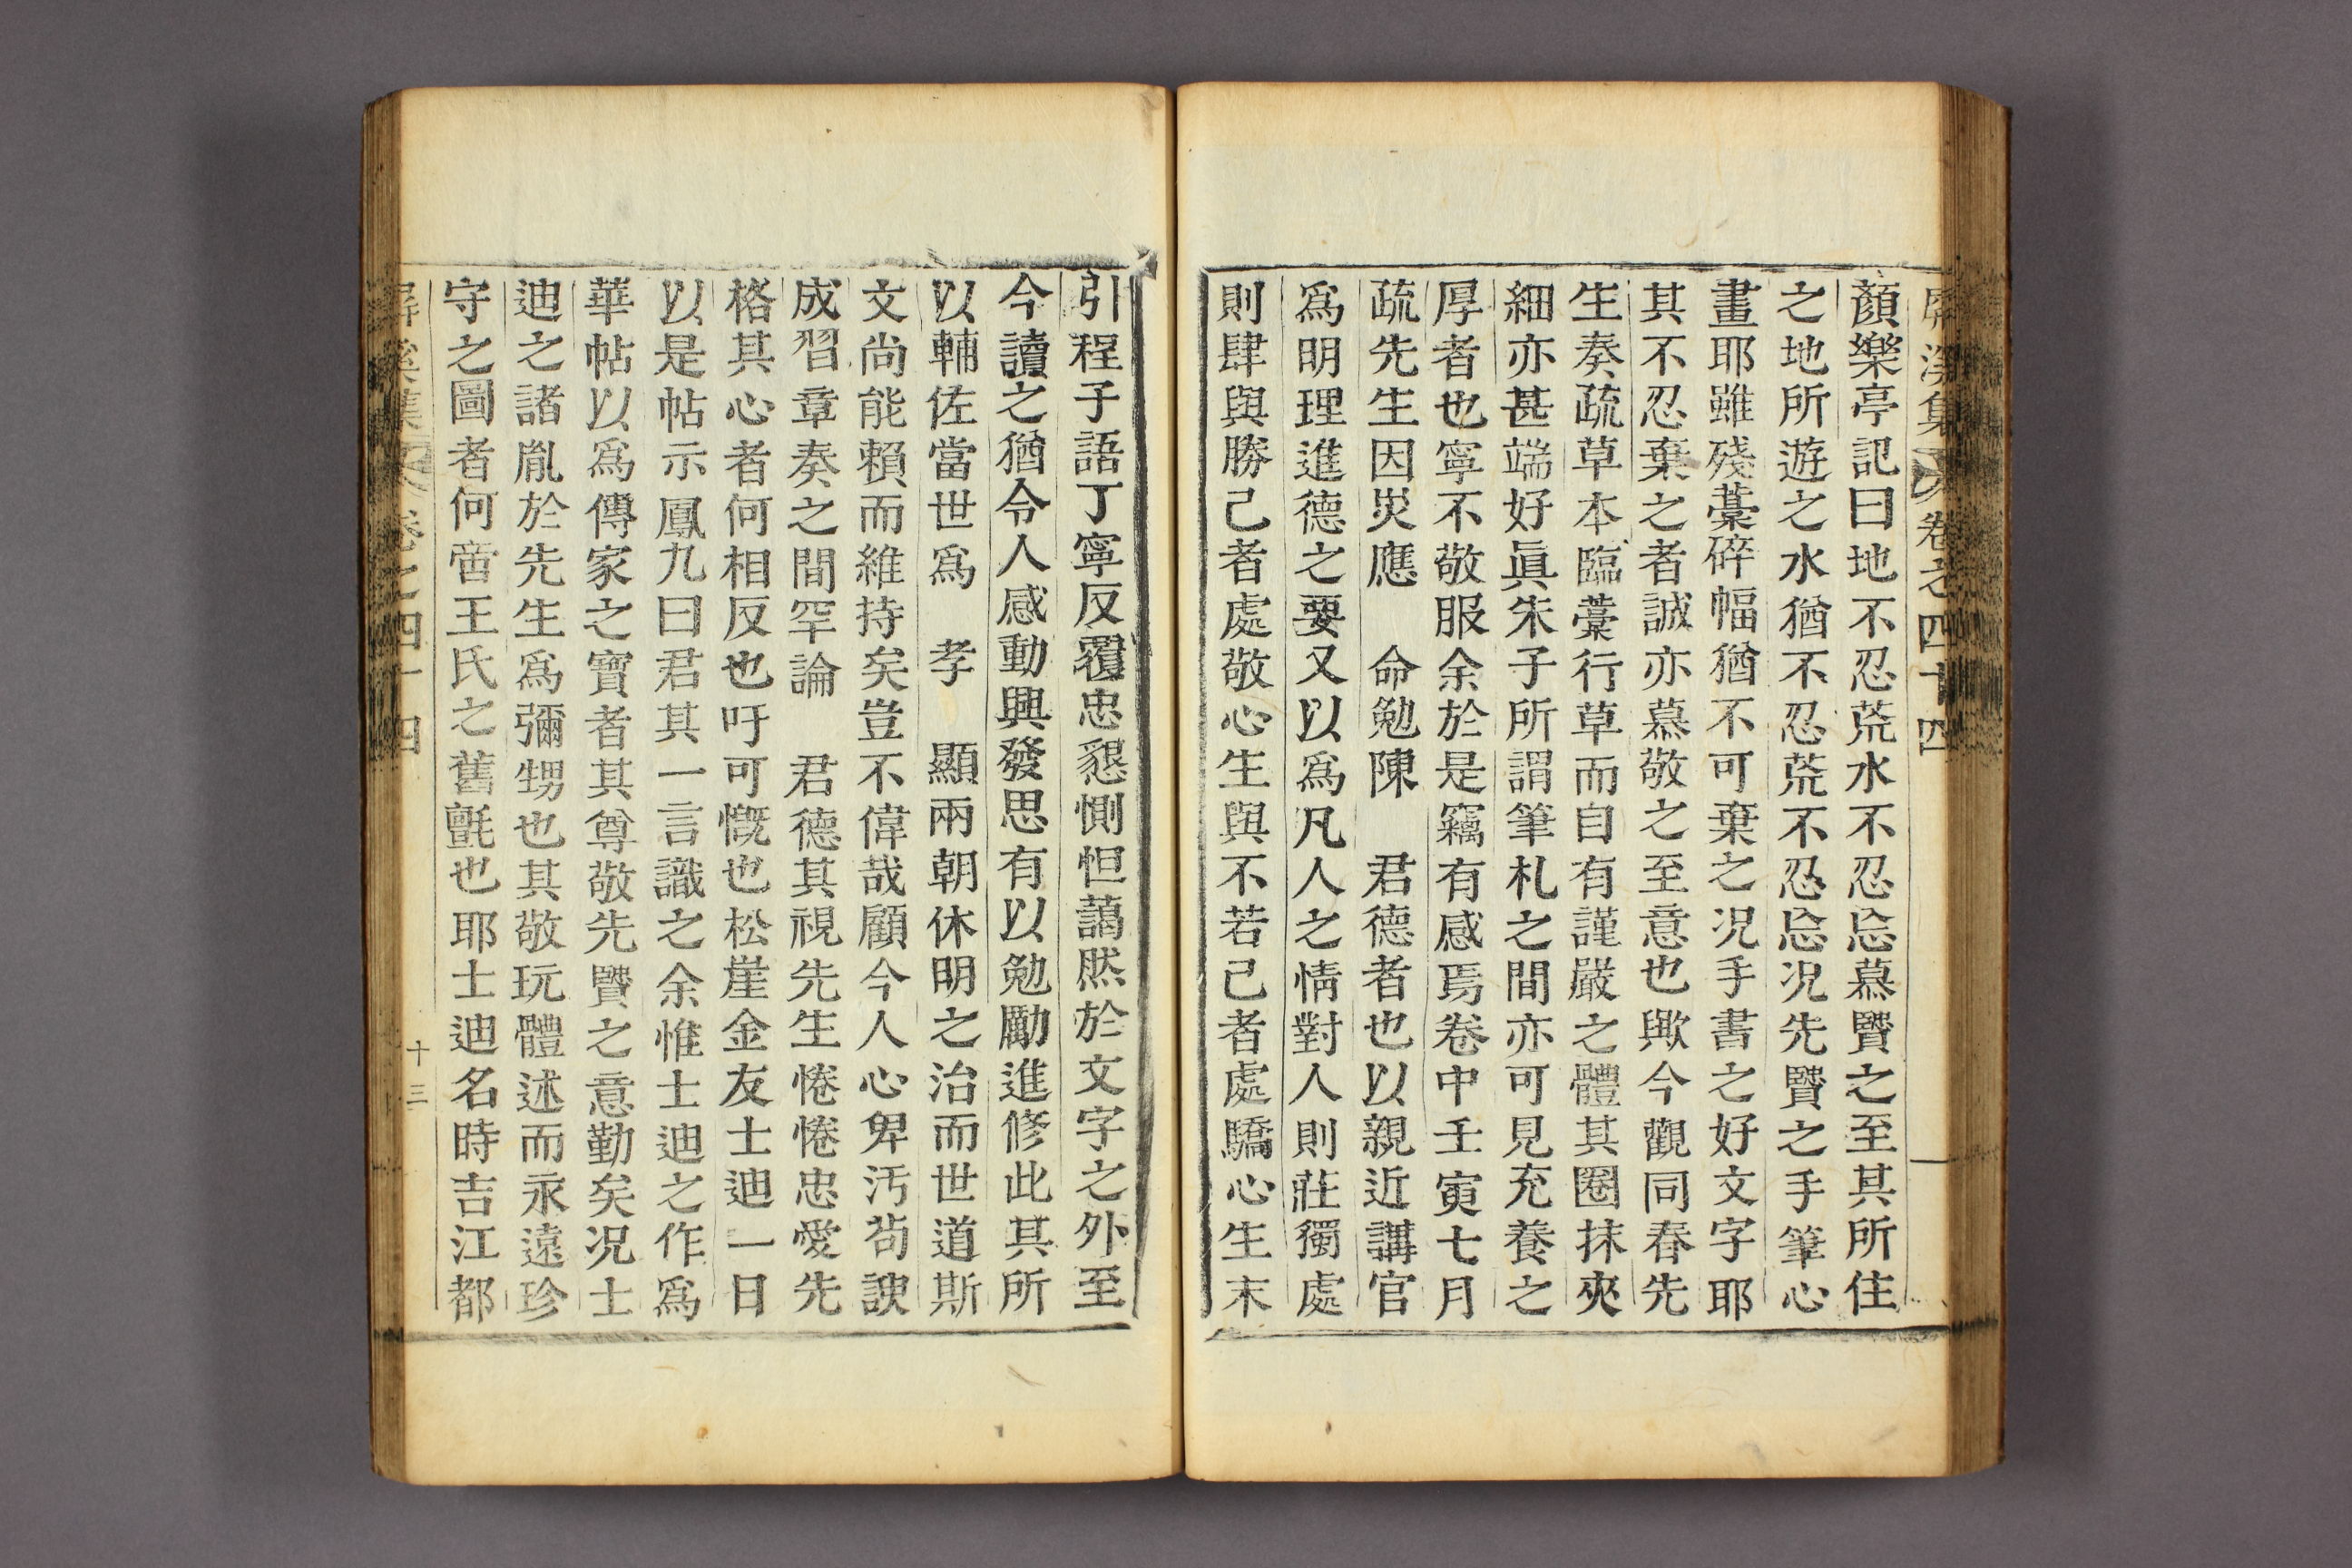 屛溪集 卷之四十四
顏樂亭記曰地不忍荒水不忍忘慕賢之至其所住
之地所遊之水猶不忍荒不忍忘况先賢之手筆心
畫耶雖殘藁碎幅猶不可棄之况手書之好文字耶
其不忍棄之者誠亦慕敬之至意也歟今觀同春先
生奏疏草本臨藁行草而自有謹嚴之體其圈抹夾
細亦甚端好眞朱子所謂筆札之間亦可見充養之
厚者也寧不敬服余於是竊有感焉卷中壬寅七月
疏先生因災應 命勉陳 君德者也以親近講官
爲明理進德之要又以爲凡人之情對人則莊獨處
則肆與勝己者處敬心生與不若己者處驕心生末
引程子語丁寧反覆忠懇惻怛藹然於文字之外至
今讀之猶令人感動興發思有以勉勵進修此其所
以輔佐當世爲 孝 顯兩朝休明之治而世道斯
文尚能賴而維持矣豈不偉哉顧今人心卑汚苟諛
成習章奏之間罕論 君德其視先生惓惓忠愛先
格其心者何相反也吁可慨也松崖金友士迪一日
以是帖示鳳九曰君其一言識之余惟士迪之作爲
華帖以爲傳家之寶者其尊敬先賢之意勤矣况士
迪之諸胤於先生爲彌甥也其敬玩體述而永遠珍
守之圖者何啻王氏之舊氈也耶士迪名時吉江都
屛溪集 卷之四十四 十三